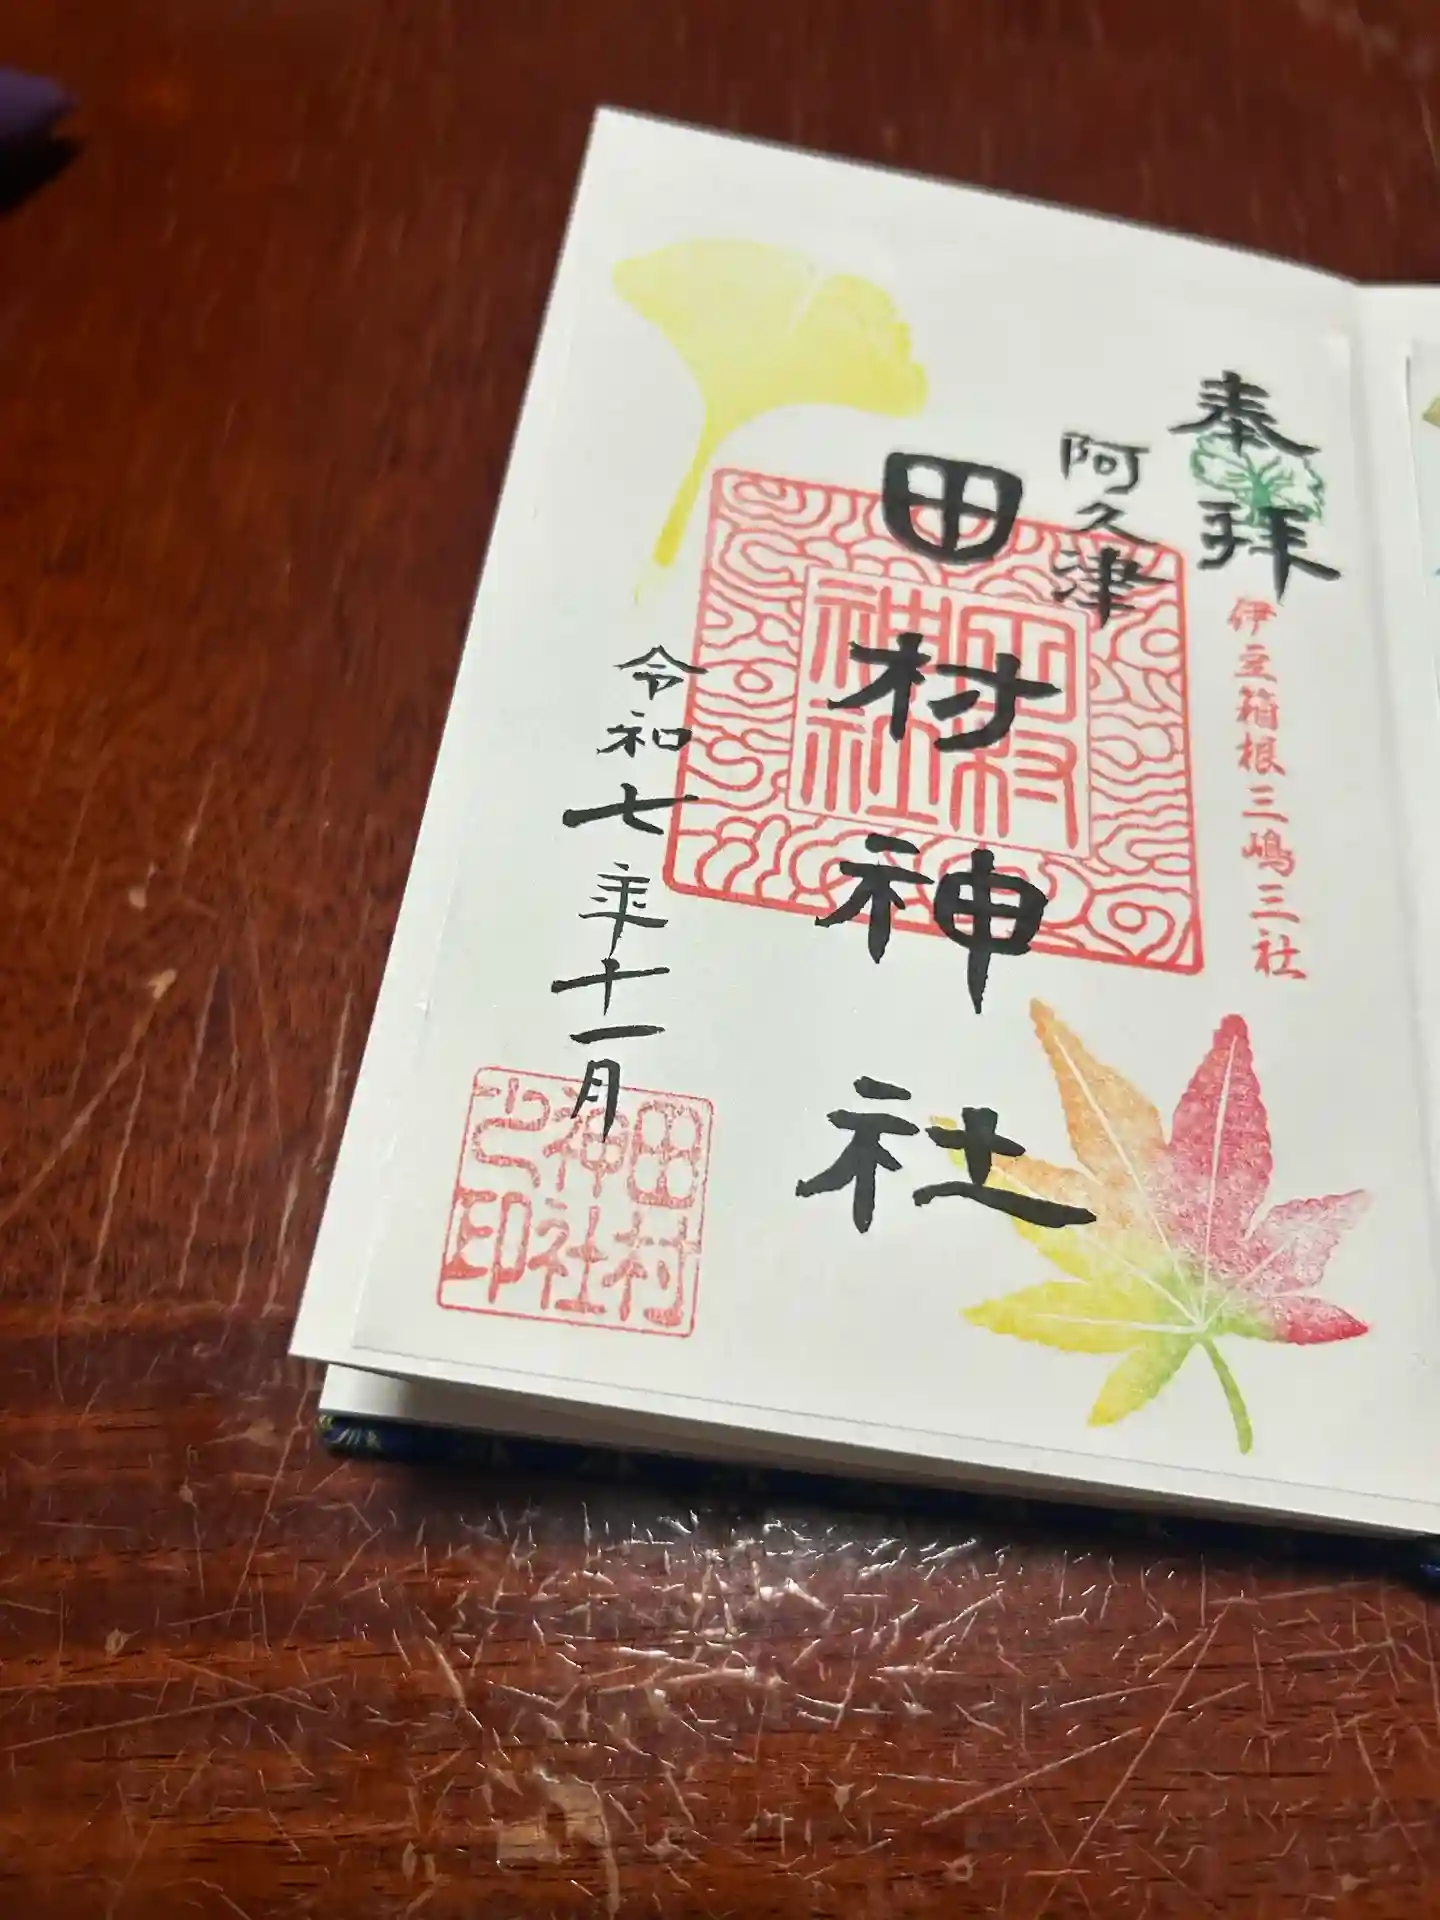 奉拝
伊豆箱根三嶋三社
阿久津
田村神社
田村神社
令和七年十一月
田村神社之印